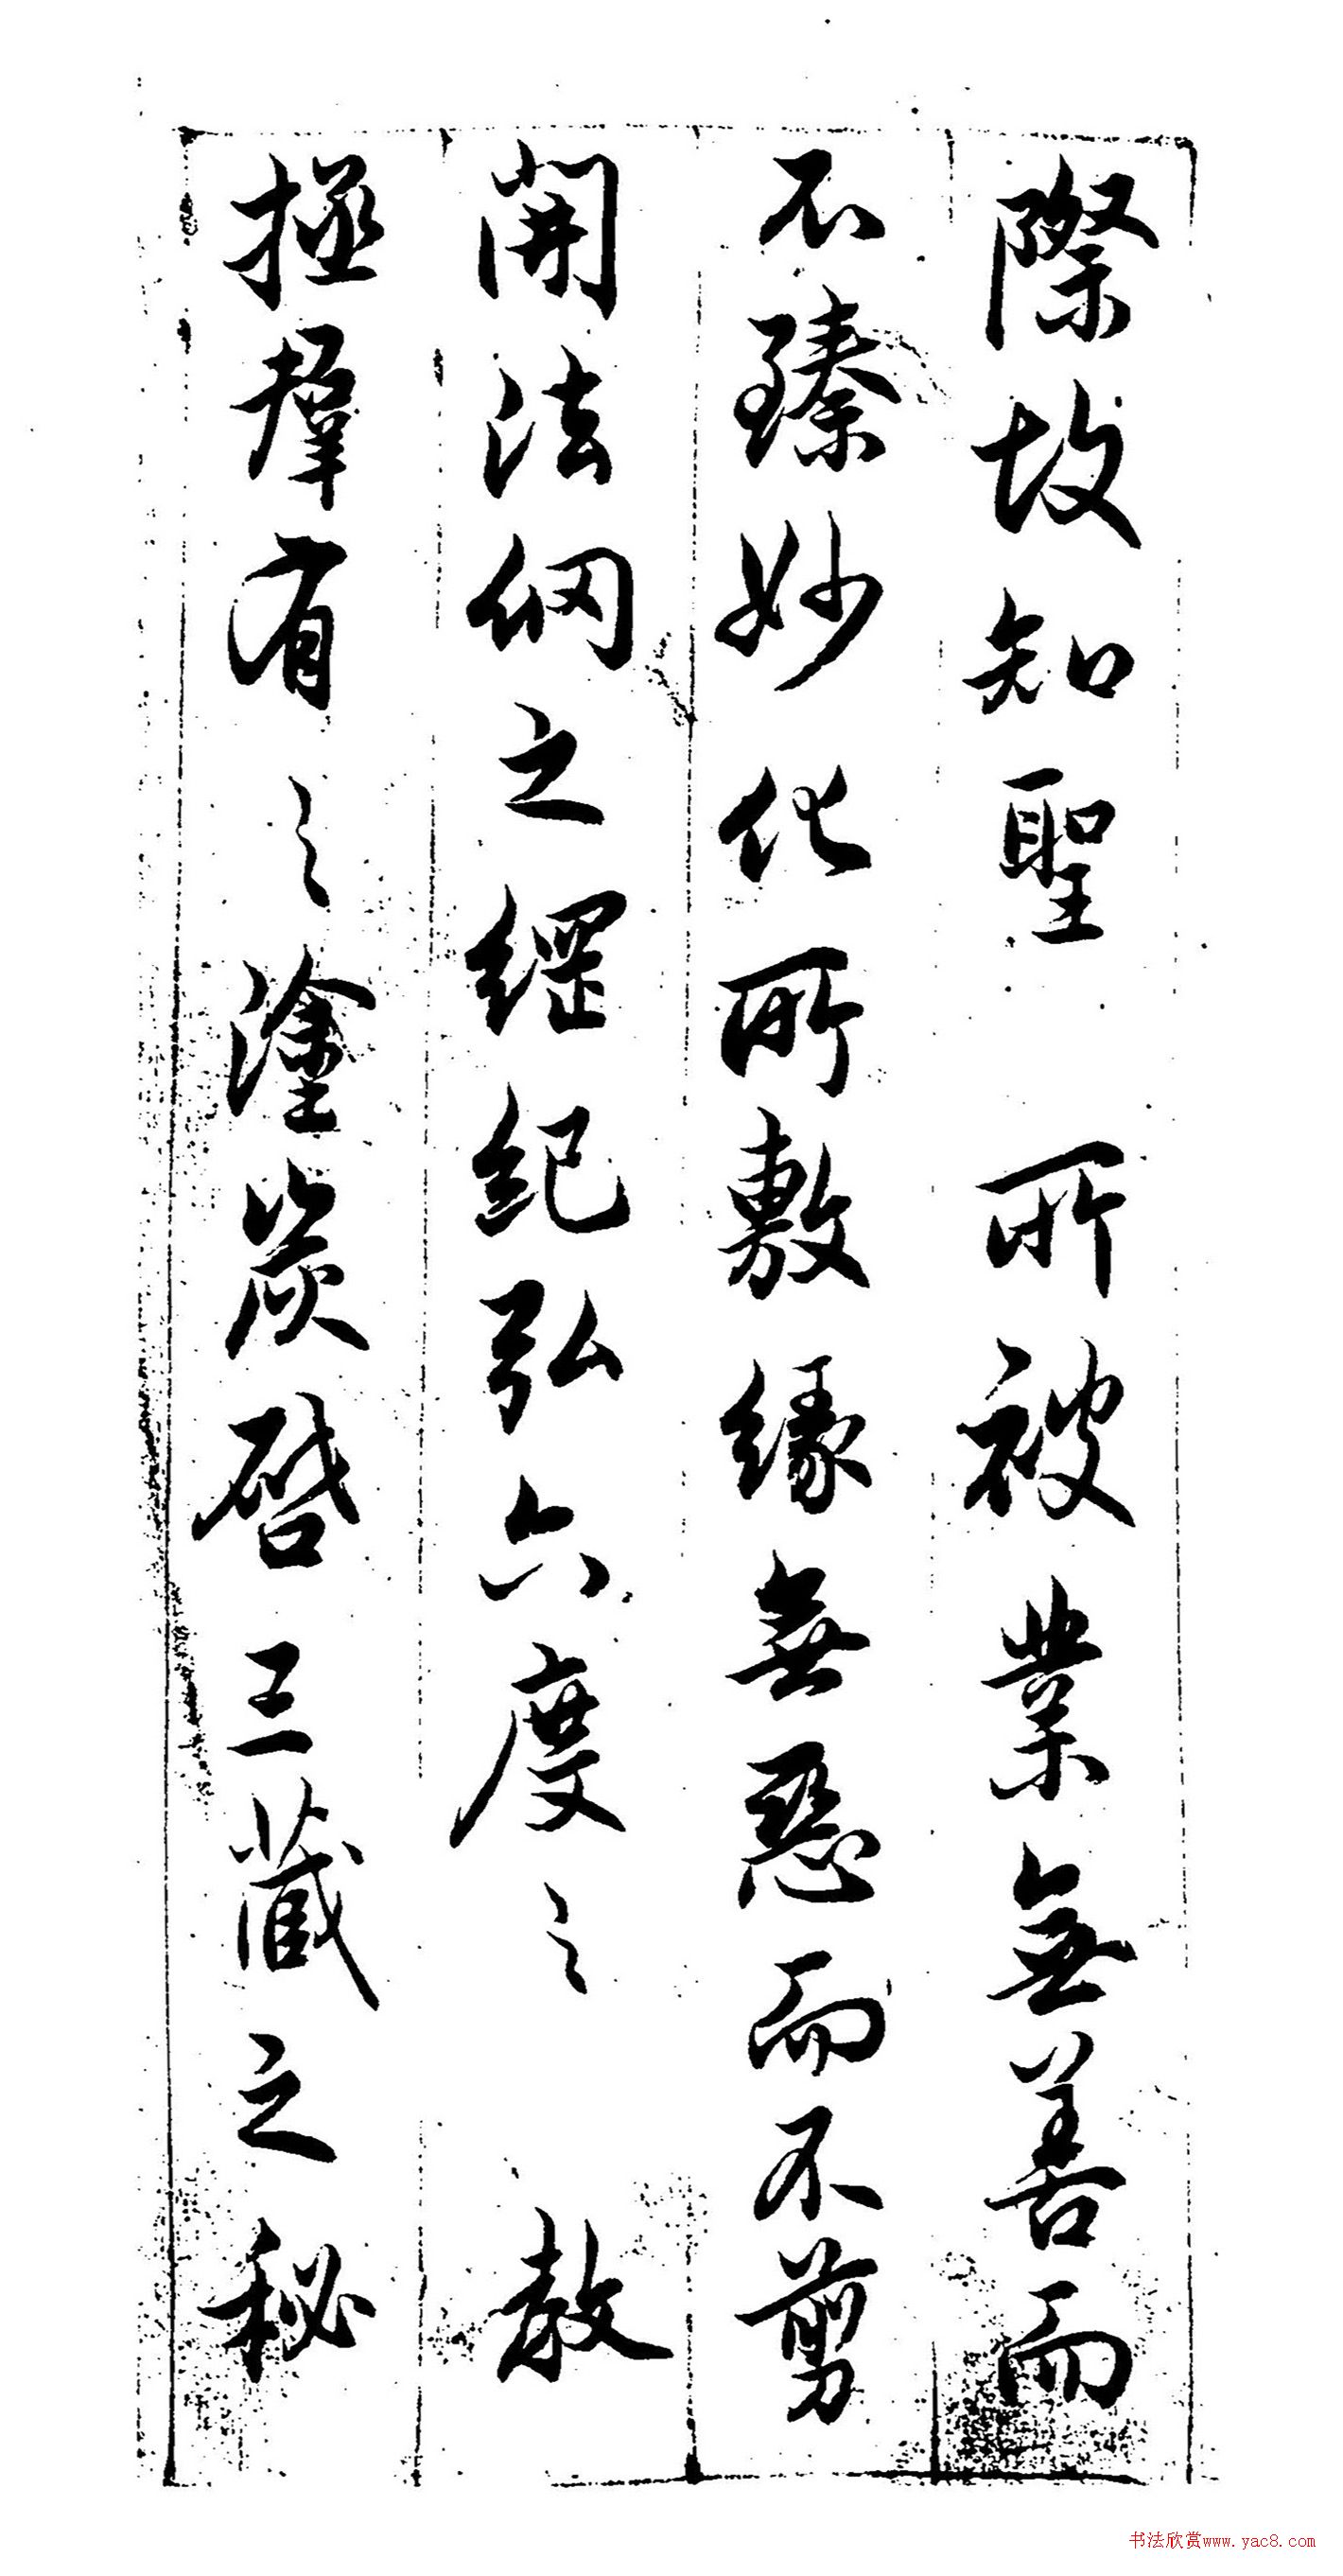 際故知聖 所被業無善而
不臻妙化所敷緣無惡而不剪
開法網之綱紀弘六度之 教
拯羣有之塗炭啓三藏之秘
书法欣赏www.yac8.com